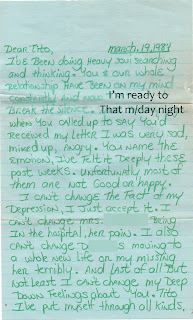 Dear Tito, March 19, 1989
I've Been doing Heavy Soul Searching
and thinking. You & our whole
Relationship Have Been on my mind
constantly and now I'm ready to
Break the Silence. That m/day night
when you called up to say you'd
Received my letter I was very sad,
mixed up, angry. You name the
Emotion, I've felt it Deeply these
past weeks. Unfortunately most
of them are not Good or happy.
I can't change the Fact of my
Depression, I Just accept it. I
can't change mrs. Being
In the hospital, her pain. I also
can't change D s moving to
a whole New Life or my missing
her terribly. And last of all But
Not Least I can't change my Deep
Down Feelings about You. Tito
I've put myself through all kinds